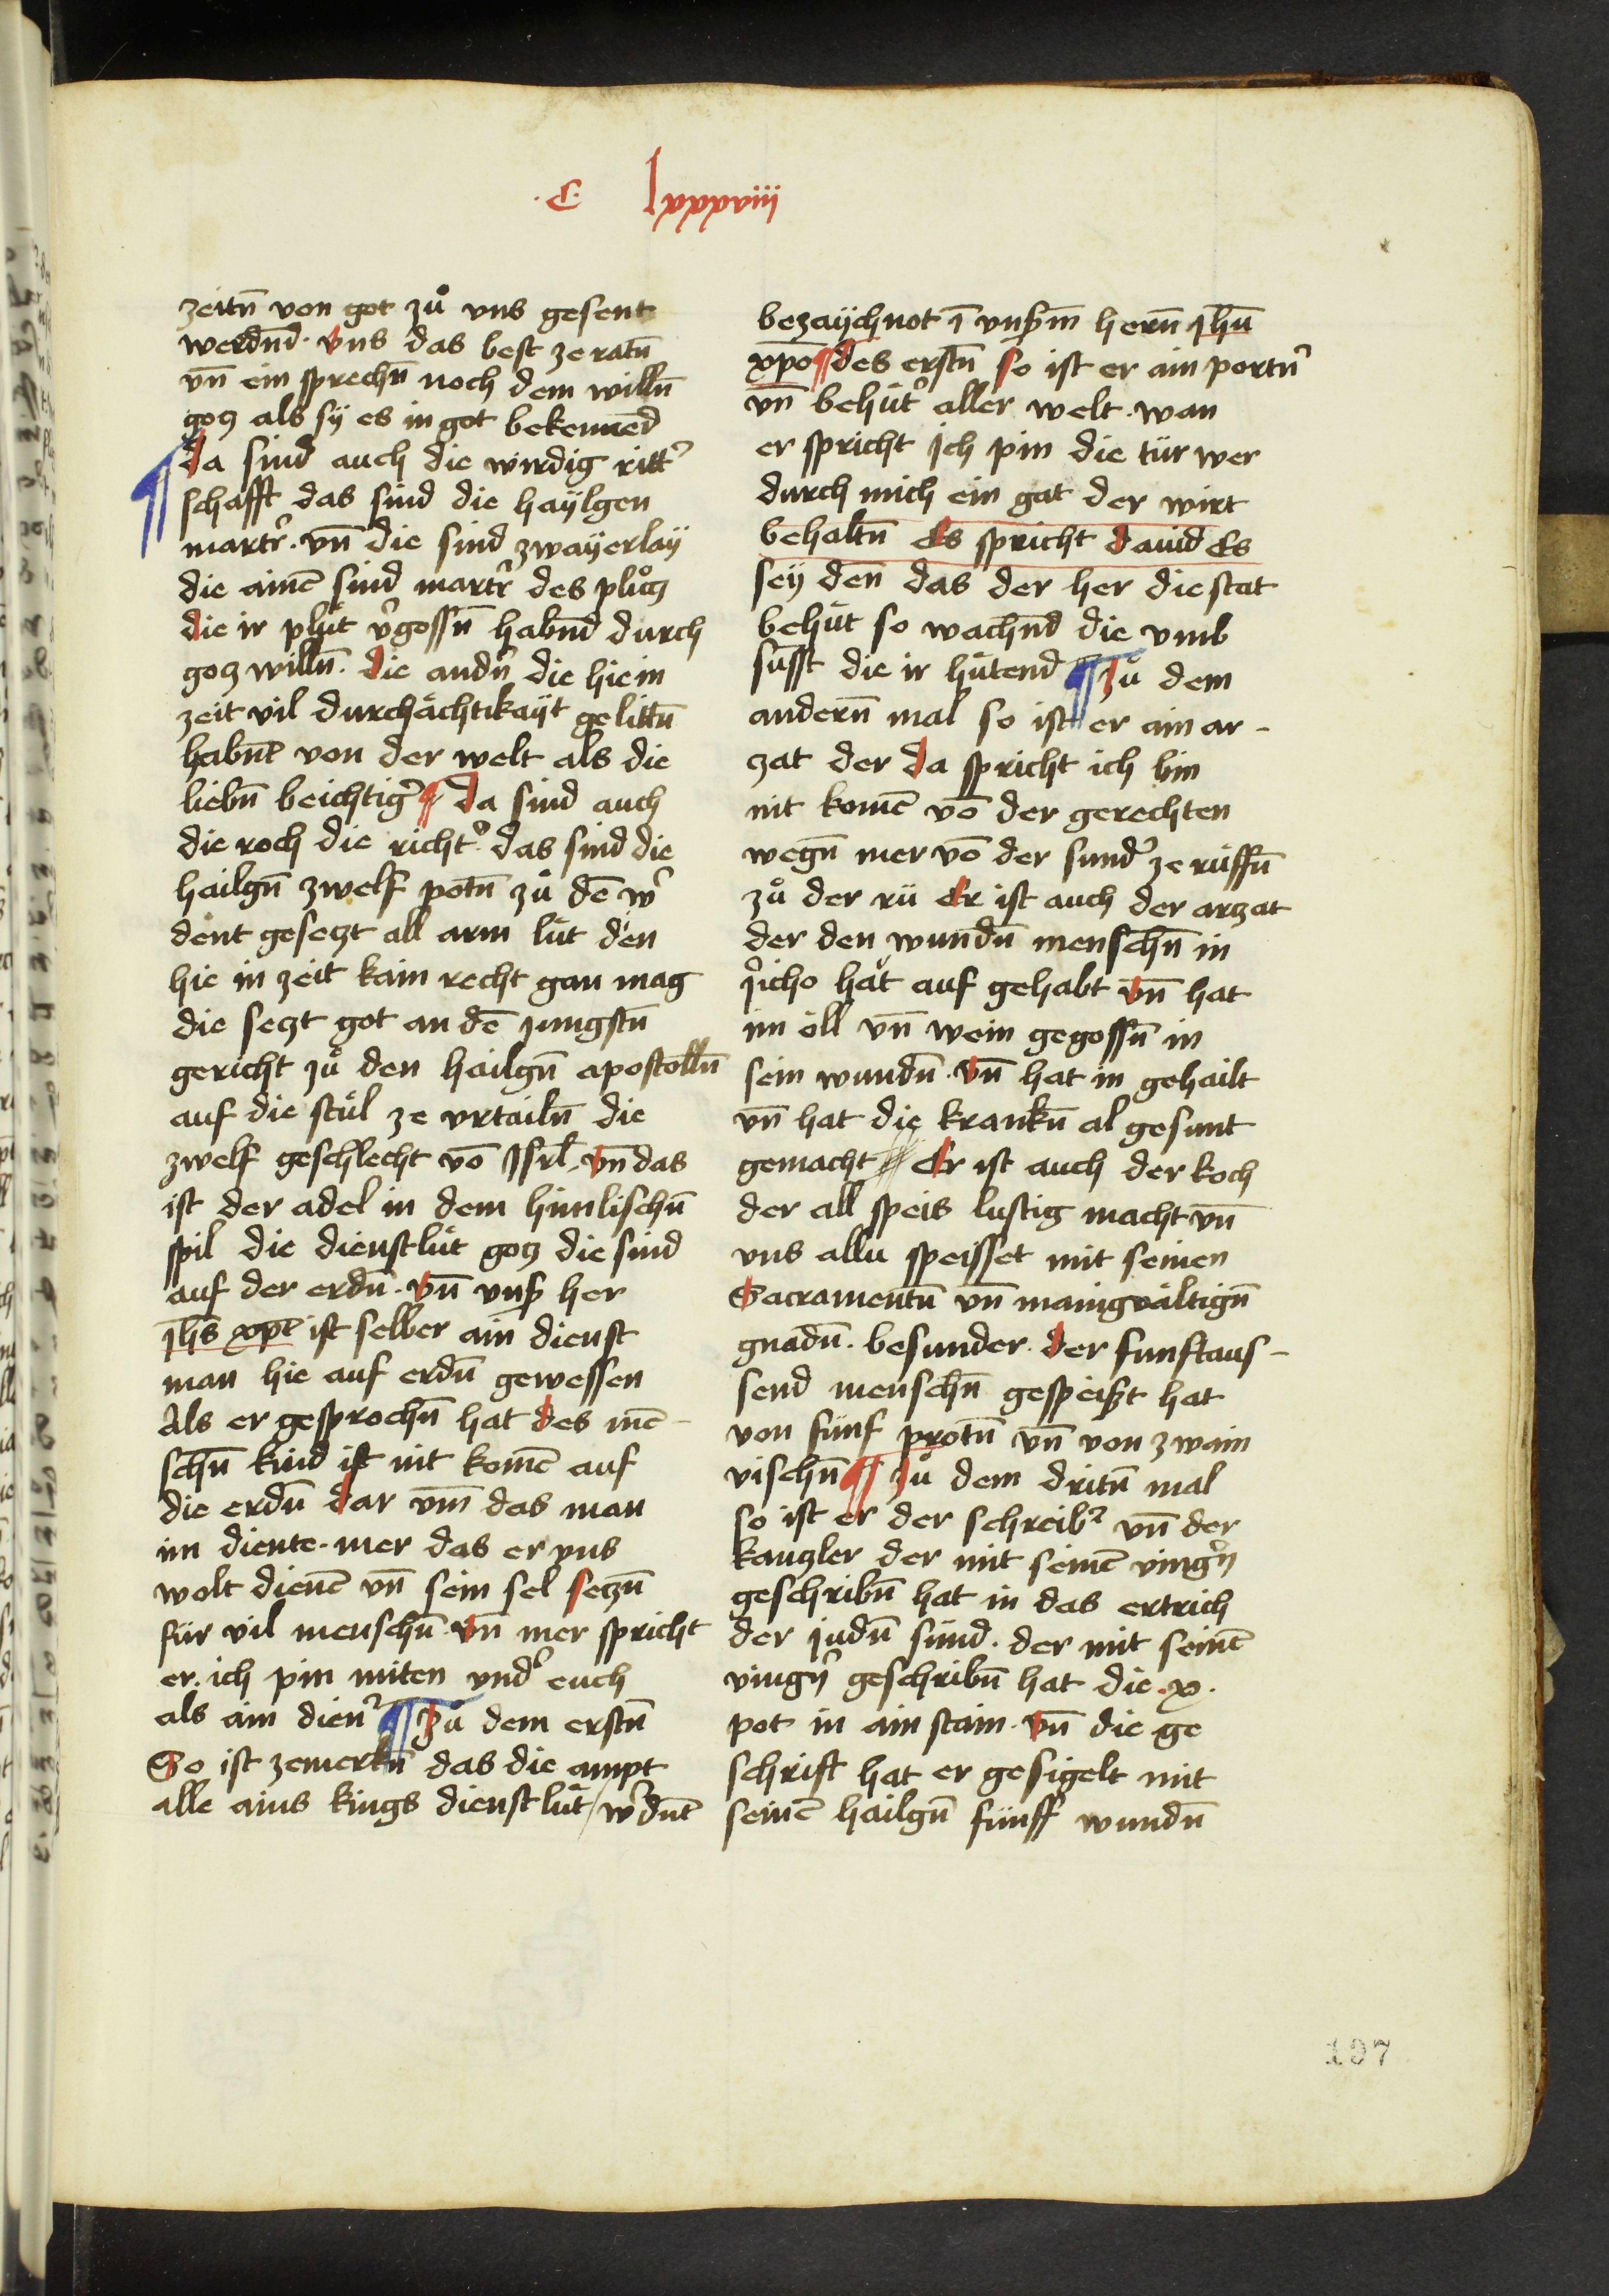 .C. lxxxviii
zeitn̄ von got zů vns gesent
werdn̄d. vns das best ze ratn̄
vn̄ ein sprechn̄ noch dem willn̄
gotz als sÿ es in got bekennēd
¶ da sind auch die wirdig ritt͛
schafft das sind die haÿlgen
martr͛. vn̄ die sind zwaÿerlaÿ
die ainē sind martr͛ des plůtz
die ir plůt v͛gossn̄ habn̄d durch
gotz willn̄. die andn͛ die hie in
zeit vil durchächtikaÿt gelittn̄
habn̄t von der welt als die
liebn̄ beichtig͛ ¶ da sind auch
die roch die richt͛. das sind die
hailgn̄ zwelf potn̄ zů dē w͛
dent gesetzt all arm lüt den
hie in zeit kain recht gan mag
die setzt got an dē jungstn̄
gericht zů den hailgn̄ apostolln̄
auf die stůl ze vrtailn̄ die
zwelf geschlecht vō Jsrl̄. vn̄ das
ist der adel in dem himlischn̄
spil die dienstlüt gotz die sind
auf der erdn̄. vn̄ vnsʒ her
jhs̄ xp̄c ist selber ain dienst
man hie auf erdn̄ gewessen
Als er gesprochn̄ hat des mē-
schn̄ kind ist nit komē auf
die erdn̄ dar vm̄ das man
im diente. mer das er vns
wolt dienē vn̄ sein sel setzn̄
für vil menschn̄. vn̄ mer spricht
er. ich pin miten vnd͛ euch
als ain dien͛ ¶ Zů dem erstn̄
So ist zemerkn̄ das die ampt
alle ains kings dienstlüt / w͛dnt
bezaÿchnot ī vnsʒm hern̄ jhū
xp̄o ¶ des erstn̄ so ist er ain portn͛
vn̄ behüt͛ aller welt. wan
er spricht jch pin die tür wer
durch mich ein gat der wirt
behaltn̄ Es spricht dauid Es
seÿ den̄ das der her die stat
behüt so wachn̄d die vmb
sus̄st die ir hütend ¶ Zů dem
andern̄ mal so ist er ain ar-
tzat der da spricht ich bin
nit komē vō der gerechten
wegn̄ mer vō der sund͛ ze rüffn̄
zů der rü Er ist auch der artzat
der den wundn̄ menschn̄ in
j͛icho hat auf gehabt vn̄ hat
im öll vn̄ wein gegossn̄ in
sein wundn̄. vn̄ hat in gehailt
vn̄ hat die krankn̄ al gesunt
gemacht Er ist auch der koch
der all speis lustig macht vn̄
vns allu speisset mit seinen
Sacramentn̄ vn̄ manigvältign̄
gnadn̄. besunder. der funftaus-
send menschn̄ gespeisʒt hat
von fünf protn̄ vn̄ von zwain
vischn̄ ¶ Zů dem dritn̄ mal
so ist er der schreib͛ vn̄ der
kanzler der mit seinē ving͛n
geschribn̄ hat in das ertrich
der judn̄ sünd. der mit seinē
vingn͛ geschribn̄ hat die .x.
pot in ain stain. vn̄ die ge
schrift hat er gesigelt mit
seinē hailgn̄ fünff wundn̄
197